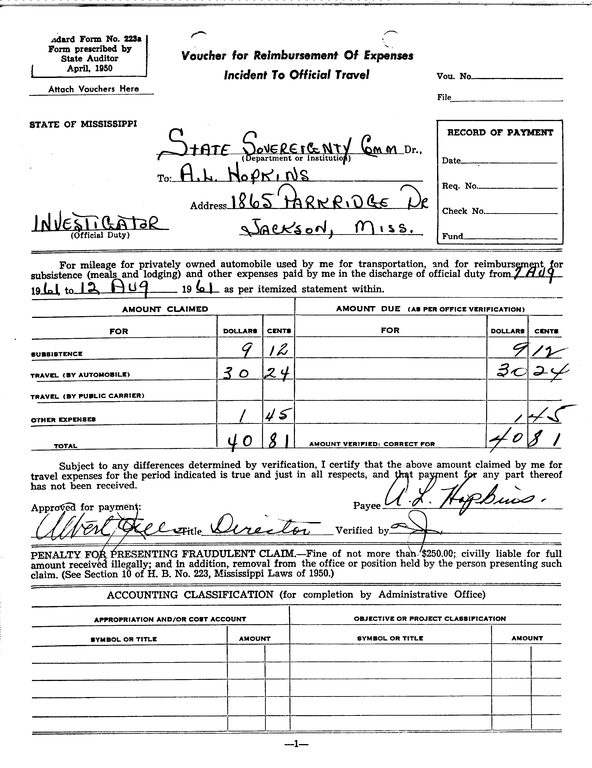 ndard Form No. 223a
Form prescribed by
State Auditor
April, 1950
Attach Vouchers Here
Voucher for Reimbursement Of Expenses
Incident To Official Travel
Vou. No.
File
STATE OF MISSISSIPPI
STATE SOVEREIGNTY COMM Dr.,
(Department or Institution)
To: A.L. HOPKINS
Address 1865 PARKRIDGE DR
INVESTIGATOR JACKSON, MISS.
(Official Duty)
RECORD OF PAYMENT
Date
Req. No.
Check No.
Fund
For mileage for privately owned automobile used by me for transportation, and for reimbursement for
subsistence (meals and lodging) and other expenses paid by me in the discharge of official duty from 7 AUG
1961 to 12 AUG 1961 as per itemized statement within.
AMOUNT CLAIMED AMOUNT DUE (AS PER OFFICE VERIFICATION)
FOR DOLLARS CENTS FOR DOLLARS CENTS
SUBSISTENCE 9 12 9 12
TRAVEL (BY AUTOMOBILE) 30 24 30 24
TRAVEL (BY PUBLIC CARRIER)
OTHER EXPENSES 1 45 1 45
TOTAL 40 81 AMOUNT VERIFIED: CORRECT FOR 40 81
Subject to any differences determined by verification, I certify that the above amount claimed by me for
travel expenses for the period indicated is true and just in all respects, and that payment for any part thereof
has not been received.
Approved for payment: Payee A. L. Hopkins.
Albert Title Director Verified by
PENALTY FOR PRESENTING FRAUDULENT CLAIM.—Fine of not more than $250.00; civilly liable for full
amount received illegally; and in addition, removal from the office or position held by the person presenting such
claim. (See Section 10 of H. B. No. 223, Mississippi Laws of 1950.)
ACCOUNTING CLASSIFICATION (for completion by Administrative Office)
APPROPRIATION AND/OR COST ACCOUNT OBJECTIVE OR PROJECT CLASSIFICATION
SYMBOL OR TITLE AMOUNT SYMBOL OR TITLE AMOUNT
—1—